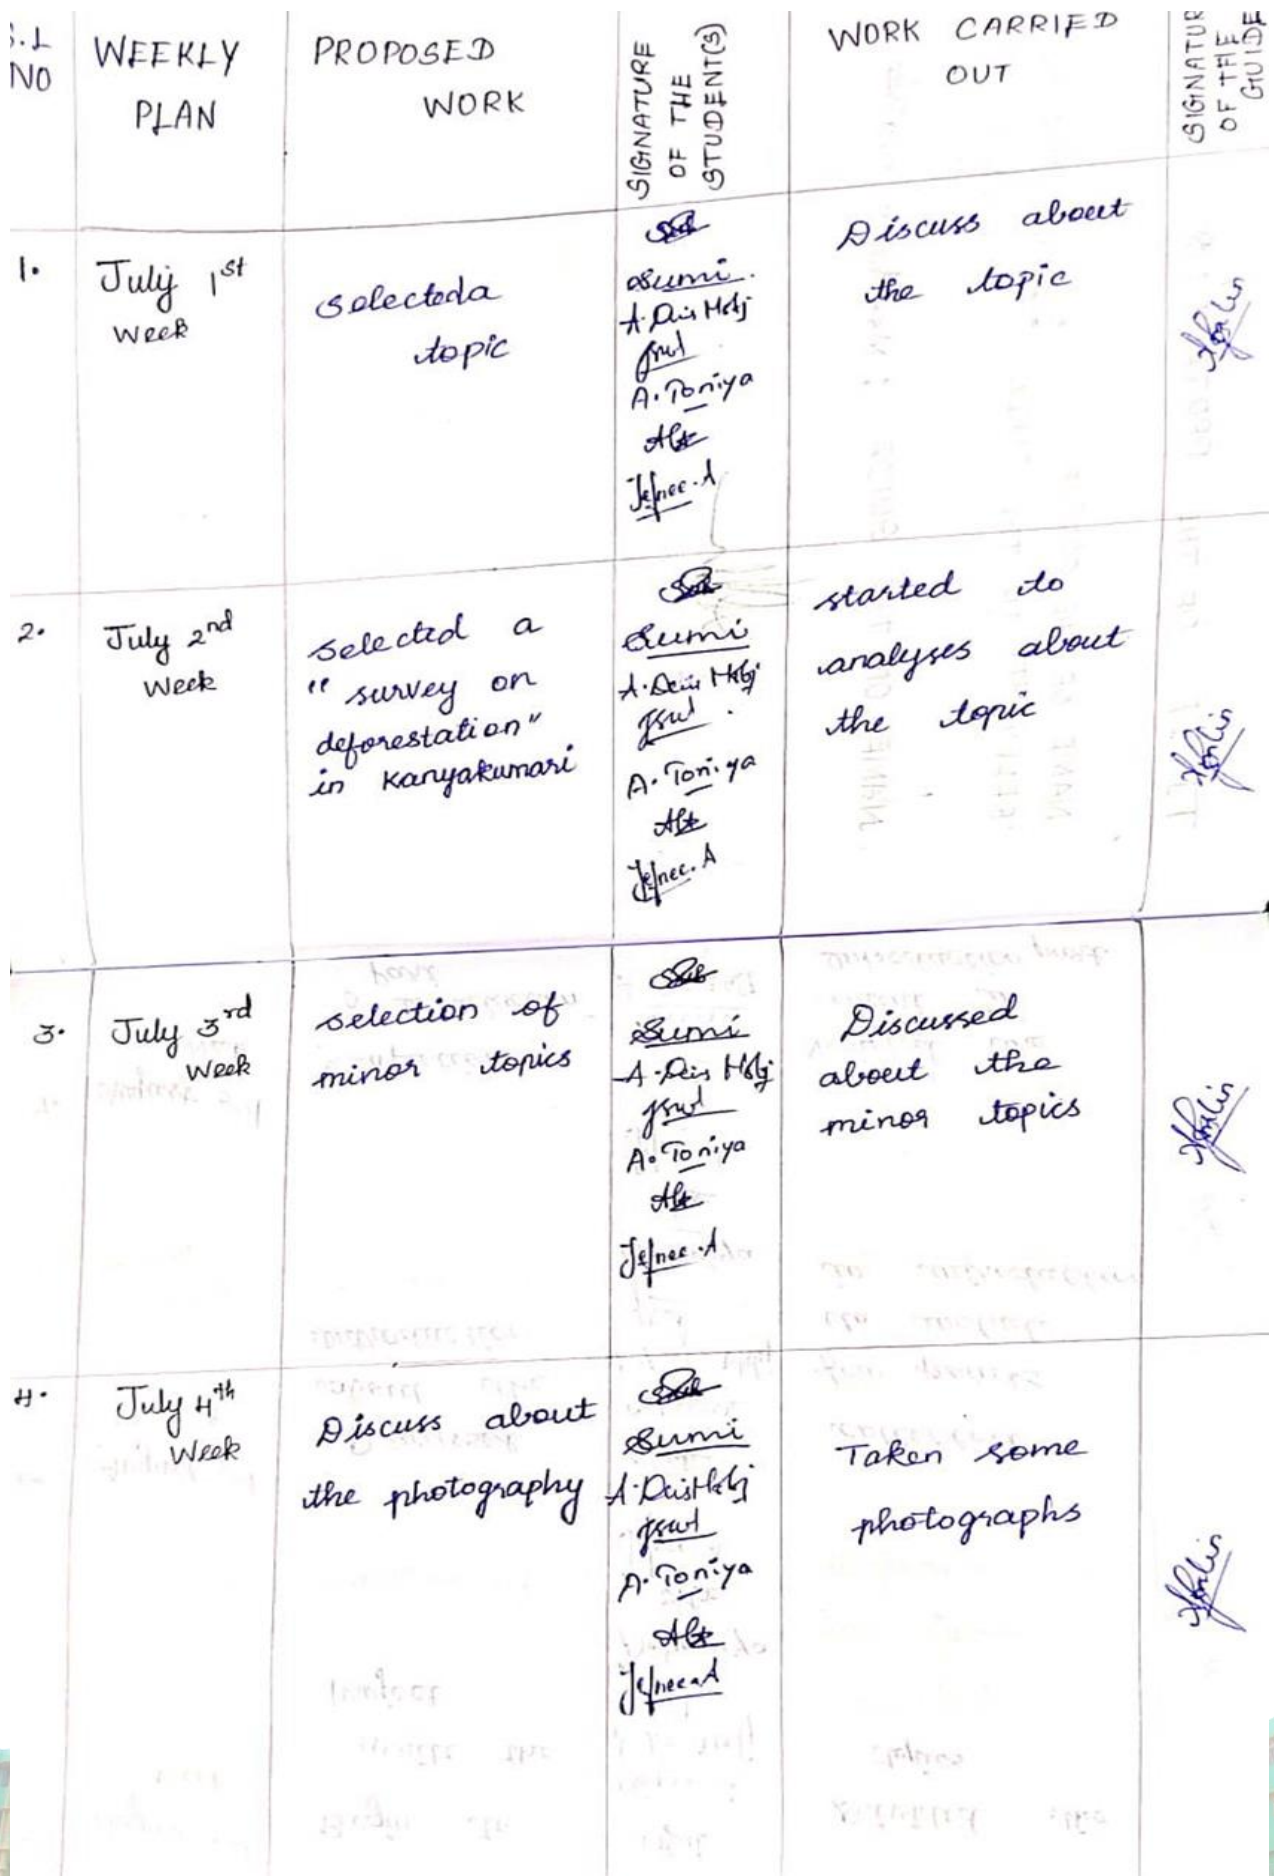 S.L NO
WEEKLY PLAN
PROPOSED WORK
SIGNATURE OF THE STUDENT(S)
WORK CARRIED OUT
SIGNATURE OF THE GUIDE
1.
July 1st
Week
selected a
topic
Sumi.
A.
A. Toniya
Jefnee.A
Discuss about
the topic
2.
July 2nd
Week
selected a
" survey on
deforestation"
in Kanyakumari
Sumi
A.
A. Toniya
Jefnee.A
started to
analyses about
the topic
3.
July 3rd
Week
selection of
minor topics
Sumi
A.
A. Toniya
Jefnee.A
Discussed
about the
minor topics
4.
July 4th
Week
Discuss about
the photography
Sumi
A.
A. Toniya
Jefnee.A
Taken some
photographs